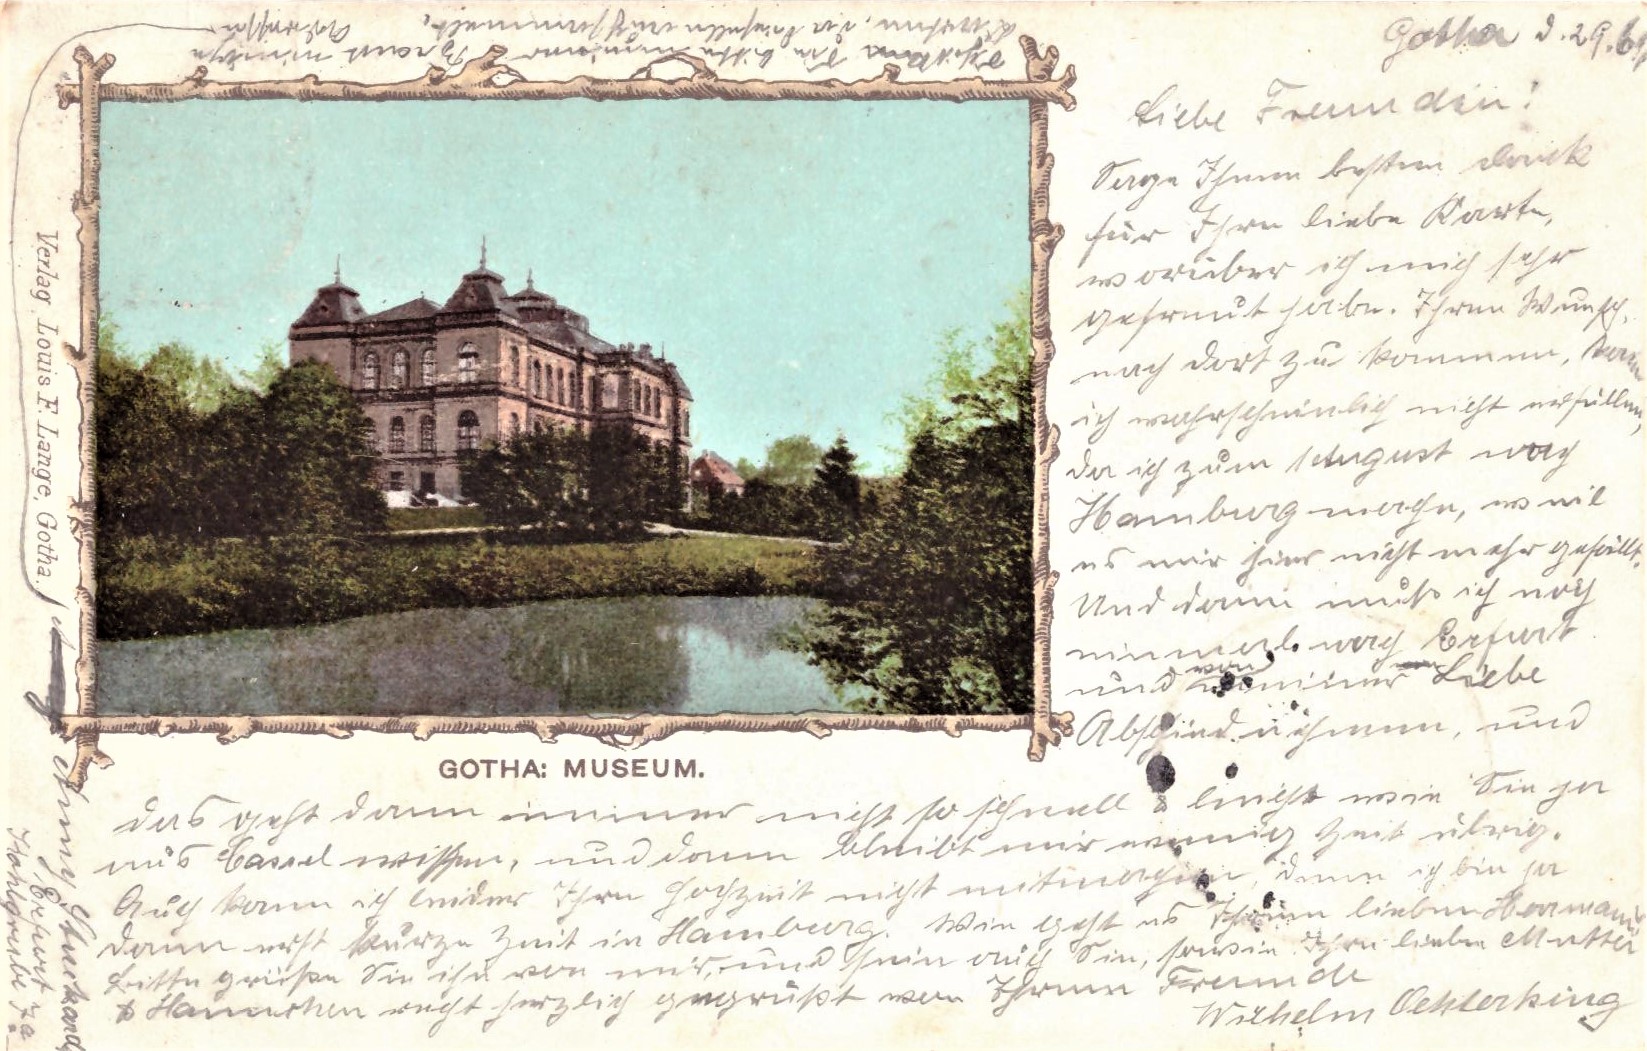 Gotha d. 29.6.
Liebe Freundin!
Sage Ihnen besten Dank
für Ihre liebe Karte,
worüber ich mich sehr
gefreut habe. Ihren Wunsch,
nach dort zu kommen, kann
ich wahrscheinlich nicht erfüllen,
da ich zum 1 August nach
Hamburg mache, weil
es mir hier nicht mehr gefällt.
Und dann muß ich noch
einmal nach Erfurt
und von meiner Liebe
Abschied nehmen, und
das geht dann immer nicht so schnell & leicht wie Sie ja
aus Cassel wissen, und dann bleibt mir wenig Zeit übrig.
Auch kann ich leider Ihre Hochzeit nicht mitmachen, denn ich bin ja
dann erst kurze Zeit in Hamburg. Wie geht es Ihren lieben Hermann
bitte grüßen Sie ihn von mir, und sein auch Sie, sowie Ihre liebe Mutter
& Hannchen recht herzlich gegrüßt von Ihrem Freunde
Wilhelm Oehlerking
Schicken Sie bitte meiner Braut eine
Ansichten, die dieselben auch sammelt.
Adresse
Anny
Erfurt
Hohlgrube 7a
Verlag Louis F. Lange, Gotha.
GOTHA: MUSEUM.